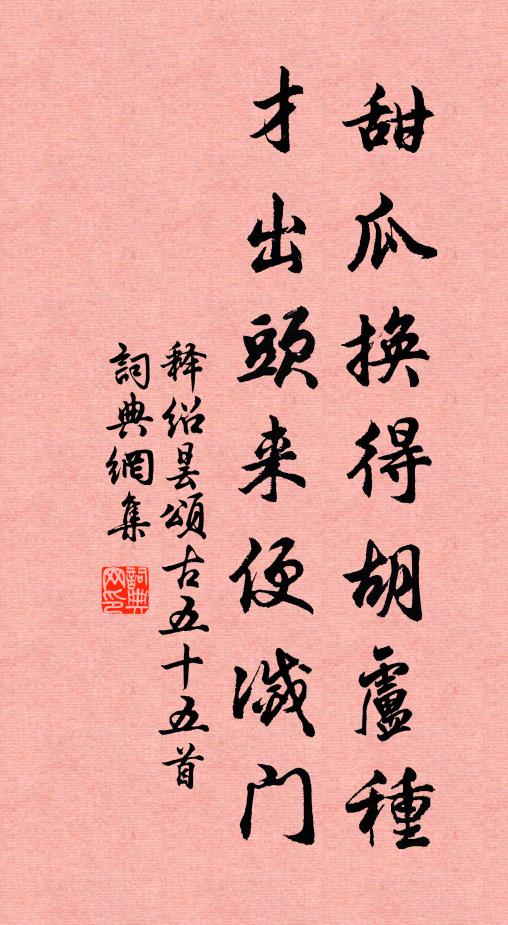 甜瓜換得胡盧種
才出頭来便滅门
释绍昙頌古五十五首
詞典網集
詞典网印